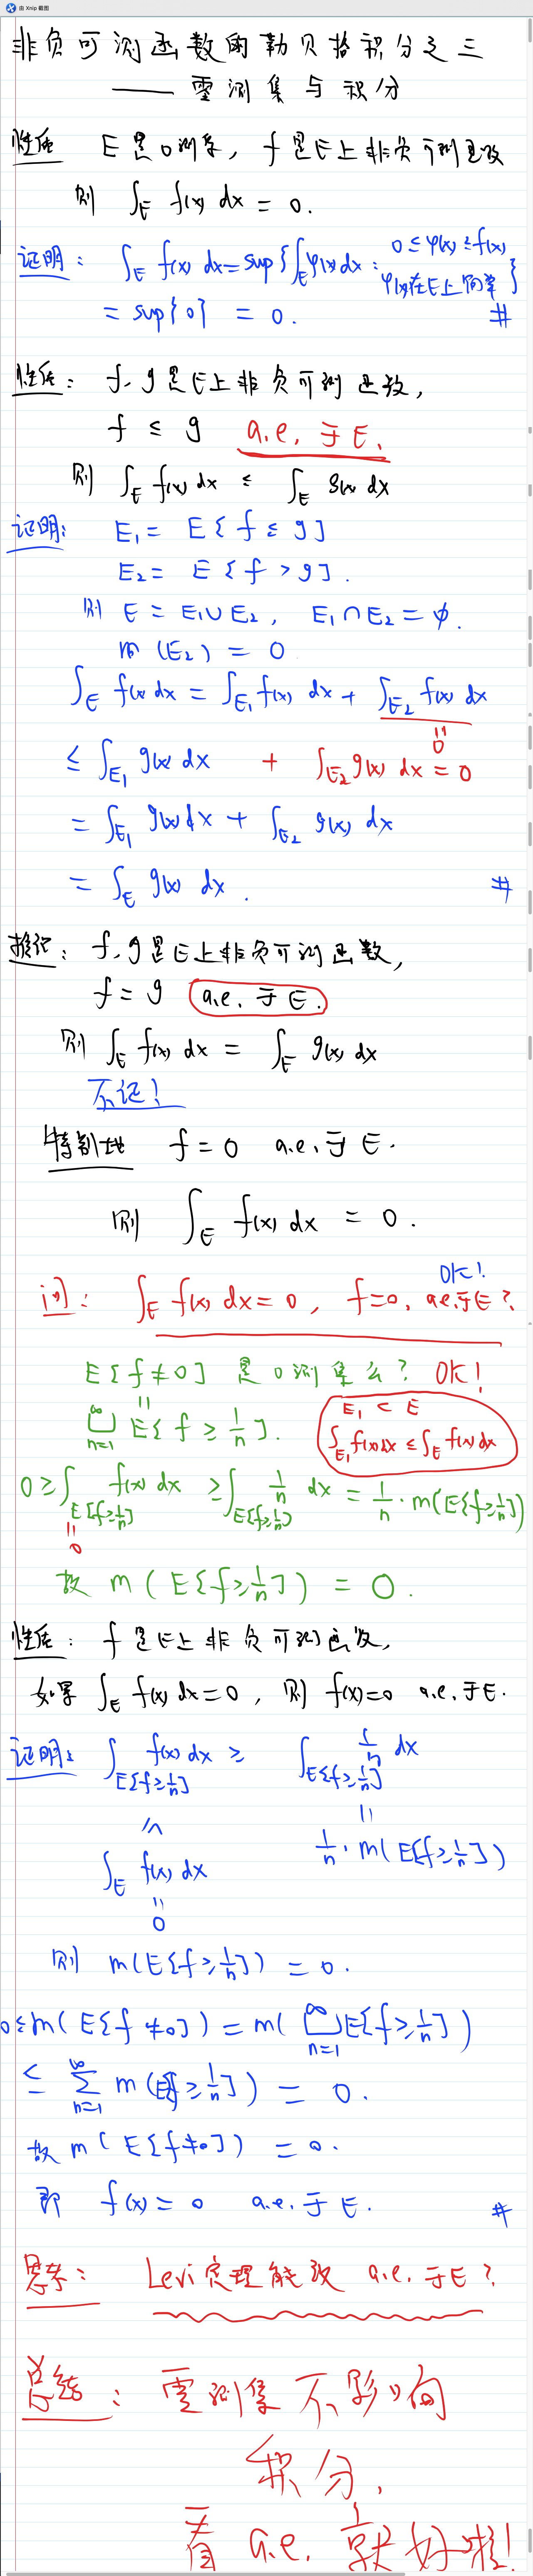 由 Xnip 截图
非负可测函数的勒贝格积分之三
—— 零测集与积分
性质 E是0测集, f是E上非负可测函数
则 ∫_E f(x) dx = 0.
证明: ∫_E f(x) dx = sup{∫_E φ(x) dx : 0 ≤ φ(x) ≤ f(x)
φ(x)在E上简单}
= sup{0} = 0. #
性质: f, g 是E上非负可测函数,
f ≤ g a.e. 于 E.
则 ∫_E f(x) dx ≤ ∫_E g(x) dx
证明: E₁ = E[f ≤ g]
E₂ = E[f > g].
则 E = E₁∪E₂, E₁∩E₂ = φ.
m(E₂) = 0
∫_E f(x) dx = ∫_E₁ f(x) dx + ∫_E₂ f(x) dx
=
0
≤ ∫_E₁ g(x) dx + ∫_E₂ g(x) dx = 0
= ∫_E₁ g(x) dx + ∫_E₂ g(x) dx
= ∫_E g(x) dx. #
推论: f, g是E上非负可测函数,
f = g a.e. 于 E.
则 ∫_E f(x) dx = ∫_E g(x) dx
不证!
特别地 f = 0 a.e. 于 E.
则 ∫_E f(x) dx = 0.
OK!
问: ∫_E f(x) dx = 0, f = 0, a.e.于E?
E[f ≠ 0] 是0测集么? OK!
=
⋃_{n=1}^∞ E[f ≥ 1/n].
E₁ ⊂ E
∫_E₁ f(x) dx ≤ ∫_E f(x) dx
0 ≥ ∫_{E[f≥1/n]} f(x) dx ≥ ∫_{E[f≥1/n]} 1/n dx = 1/n · m(E[f≥1/n])
=
0
故 m(E[f≥1/n]) = 0.
性质: f是E上非负可测函数,
如果 ∫_E f(x) dx = 0, 则 f(x) = 0 a.e. 于E.
证明: ∫_{E[f≥1/n]} f(x) dx ≥ ∫_{E[f≥1/n]} 1/n dx
≤ =
∫_E f(x) dx 1/n · m(E[f≥1/n])
=
0
则 m(E[f≥1/n]) = 0.
0 ≤ m(E[f≠0]) = m(⋃_{n=1}^∞ E[f≥1/n])
≤ ∑_{n=1}^∞ m(E[f≥1/n]) = 0.
故 m(E[f≠0]) = 0.
即 f(x) = 0 a.e. 于 E. #
思考: Levi定理能改 a.e. 于E?
总结: 零测集不影响
积分,
看 a.e. 就好啦!